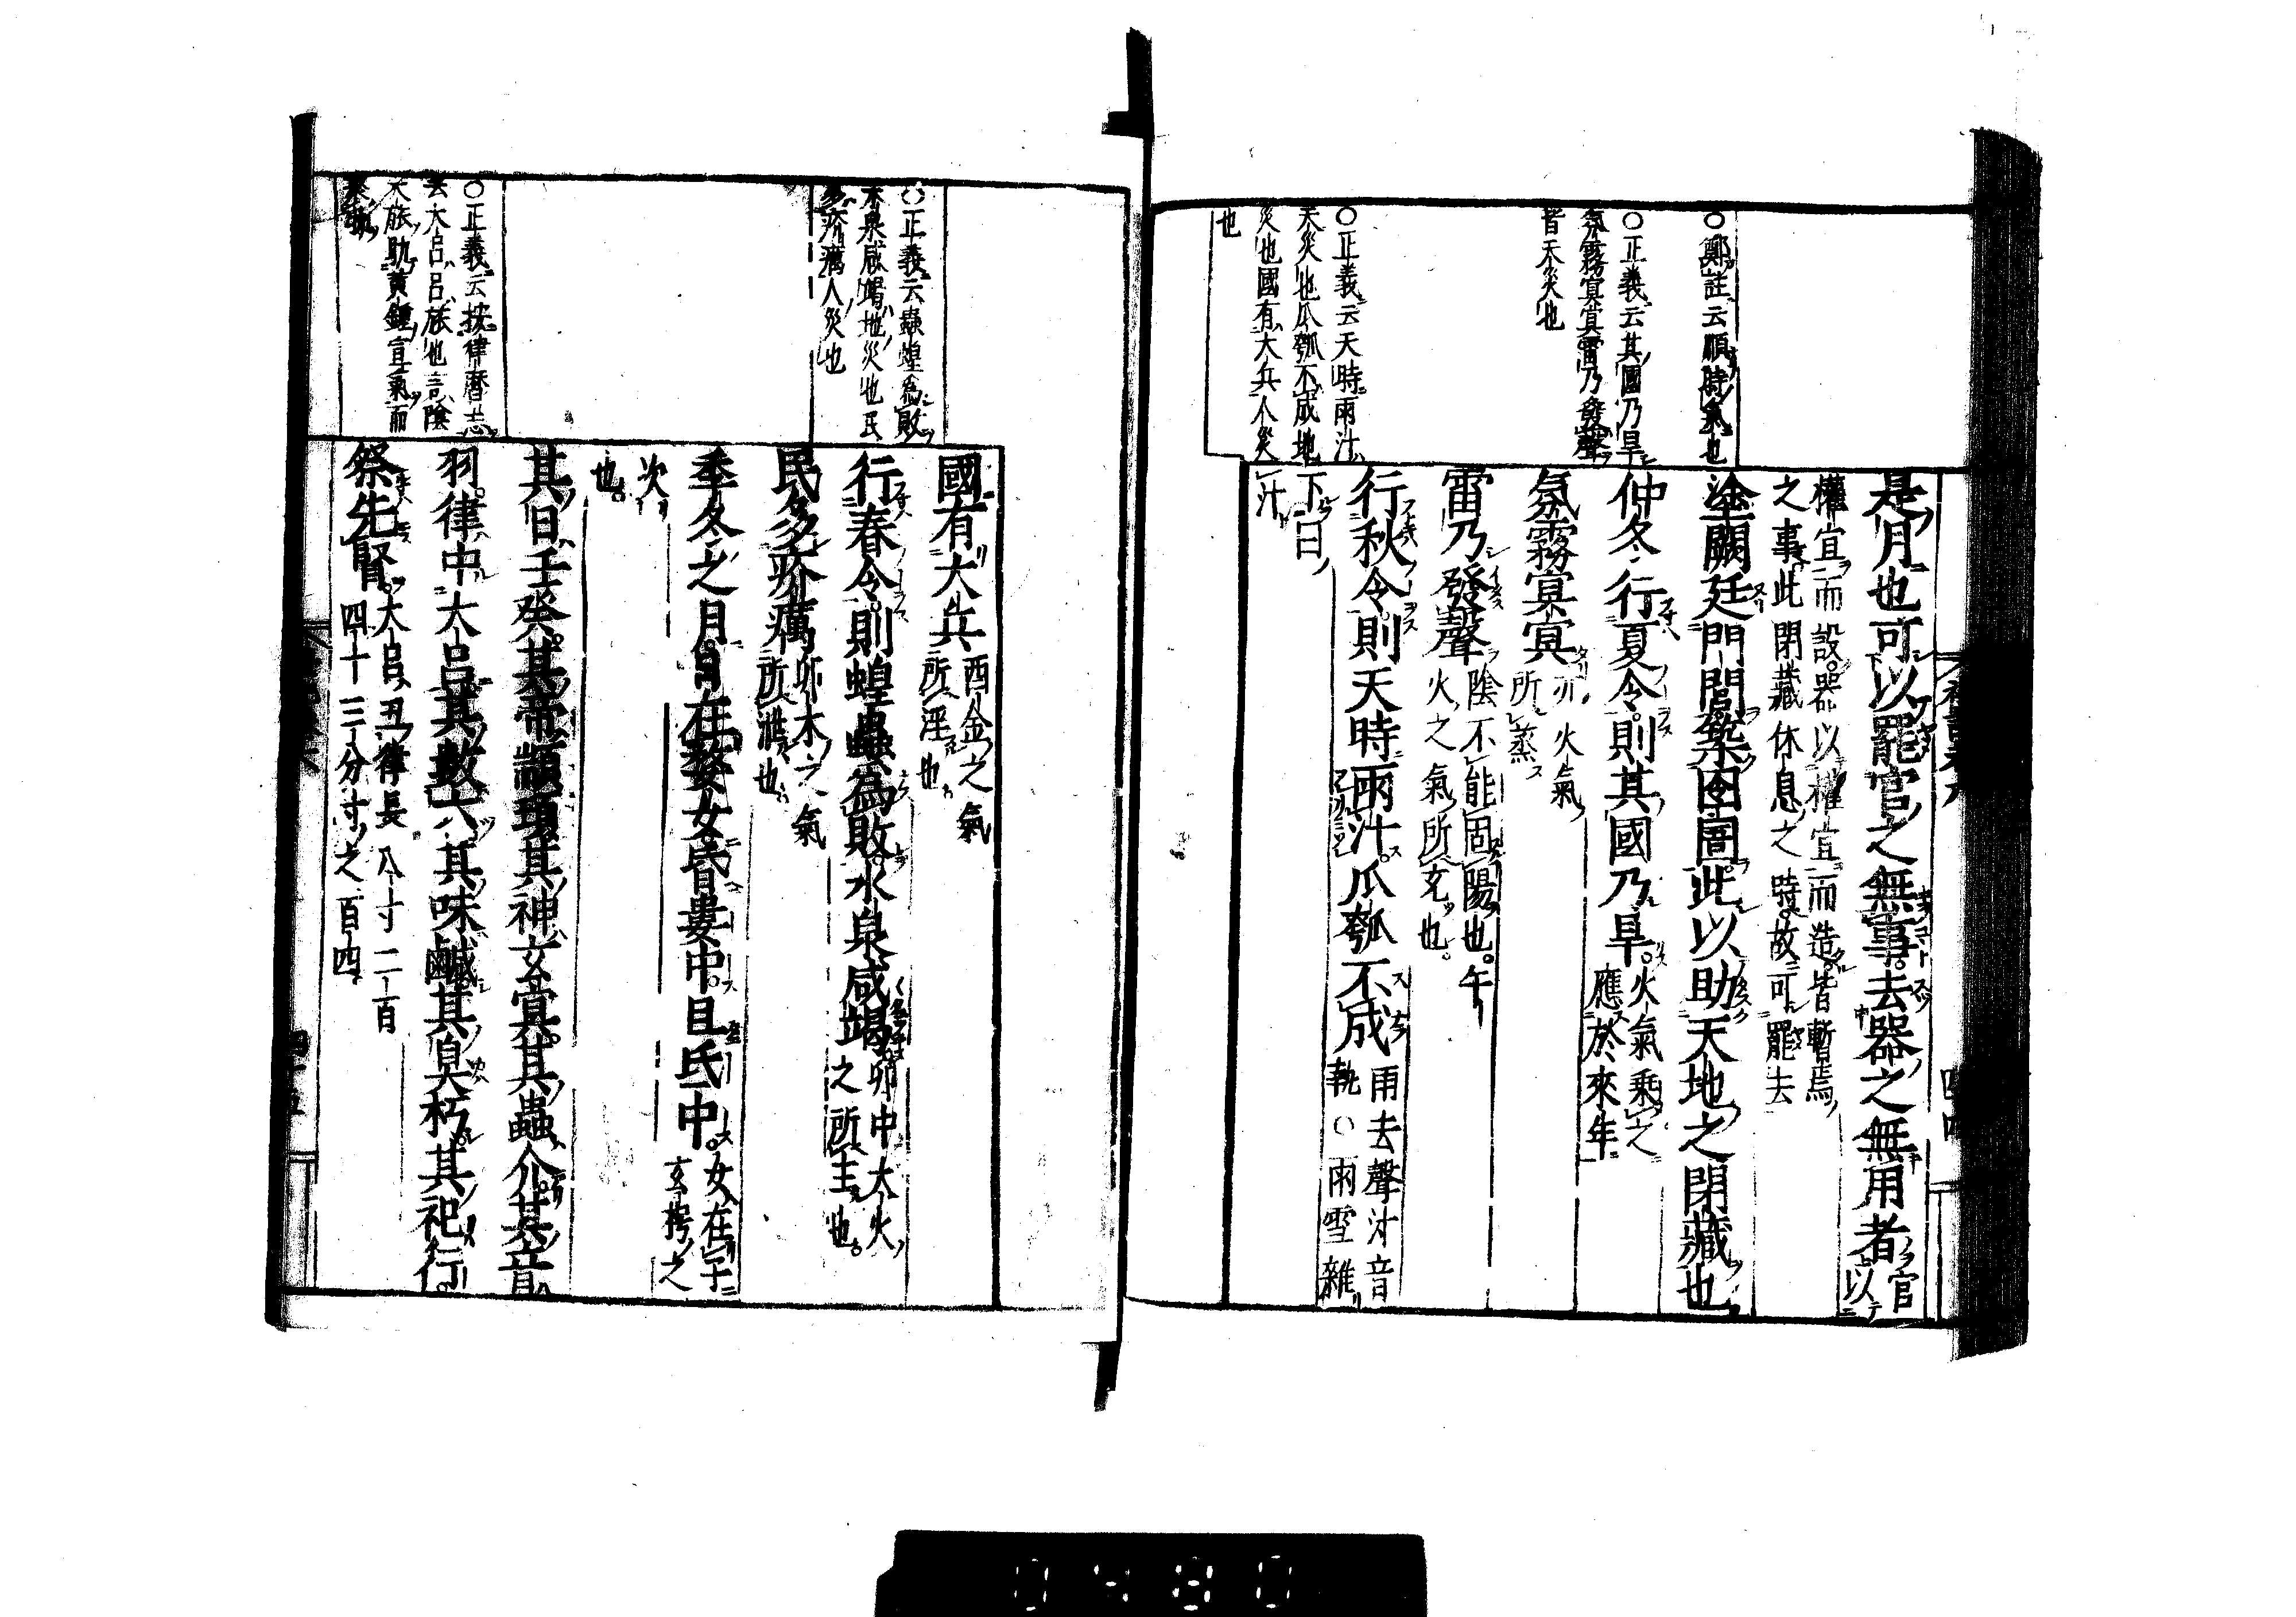 ○鄭註云順時氣也
○正義云其國乃旱
氛霧冥冥雷乃發聲
皆天災也
○正義云天時雨汁
天災也瓜瓠不成地
災也國有大兵人災
也
是月也可以罷官之無事去器之無用者官以
權宜而設器以權宜而造皆暫焉
之事此閉藏休息之時故可罷去
塗闕廷門閭築囹圄此以助天地之閉藏也
仲冬行夏令則其國乃旱火氣乘之
應於來年
氛霧冥冥亦火氣
所蒸
雷乃發聲陰不能固陽也午
火之氣所充也
行秋令則天時雨汁瓜瓠不成雨去聲汁音
執○雨雪雜
下曰
汁
○正義云蟲蝗為敗
水泉咸竭地災也民
多疥癘人災也
○正義云按律曆志
云大呂呂旅也言陰
大旅助黃鍾宣氣而
國有大兵酉金之氣
所淫也
行春令則蝗蟲為敗水泉咸竭卯中大火
之所主也
民多疥癘卯木之氣
所泄也
季冬之月日在婺女昏婁中旦氐中女在子
玄枵之
次
也
其日壬癸其帝顓頊其神玄冥其蟲介其音
羽律中大呂其數六其味鹹其臭朽其祀行
祭先腎大呂丑律長八寸二百
四十三分寸之百四